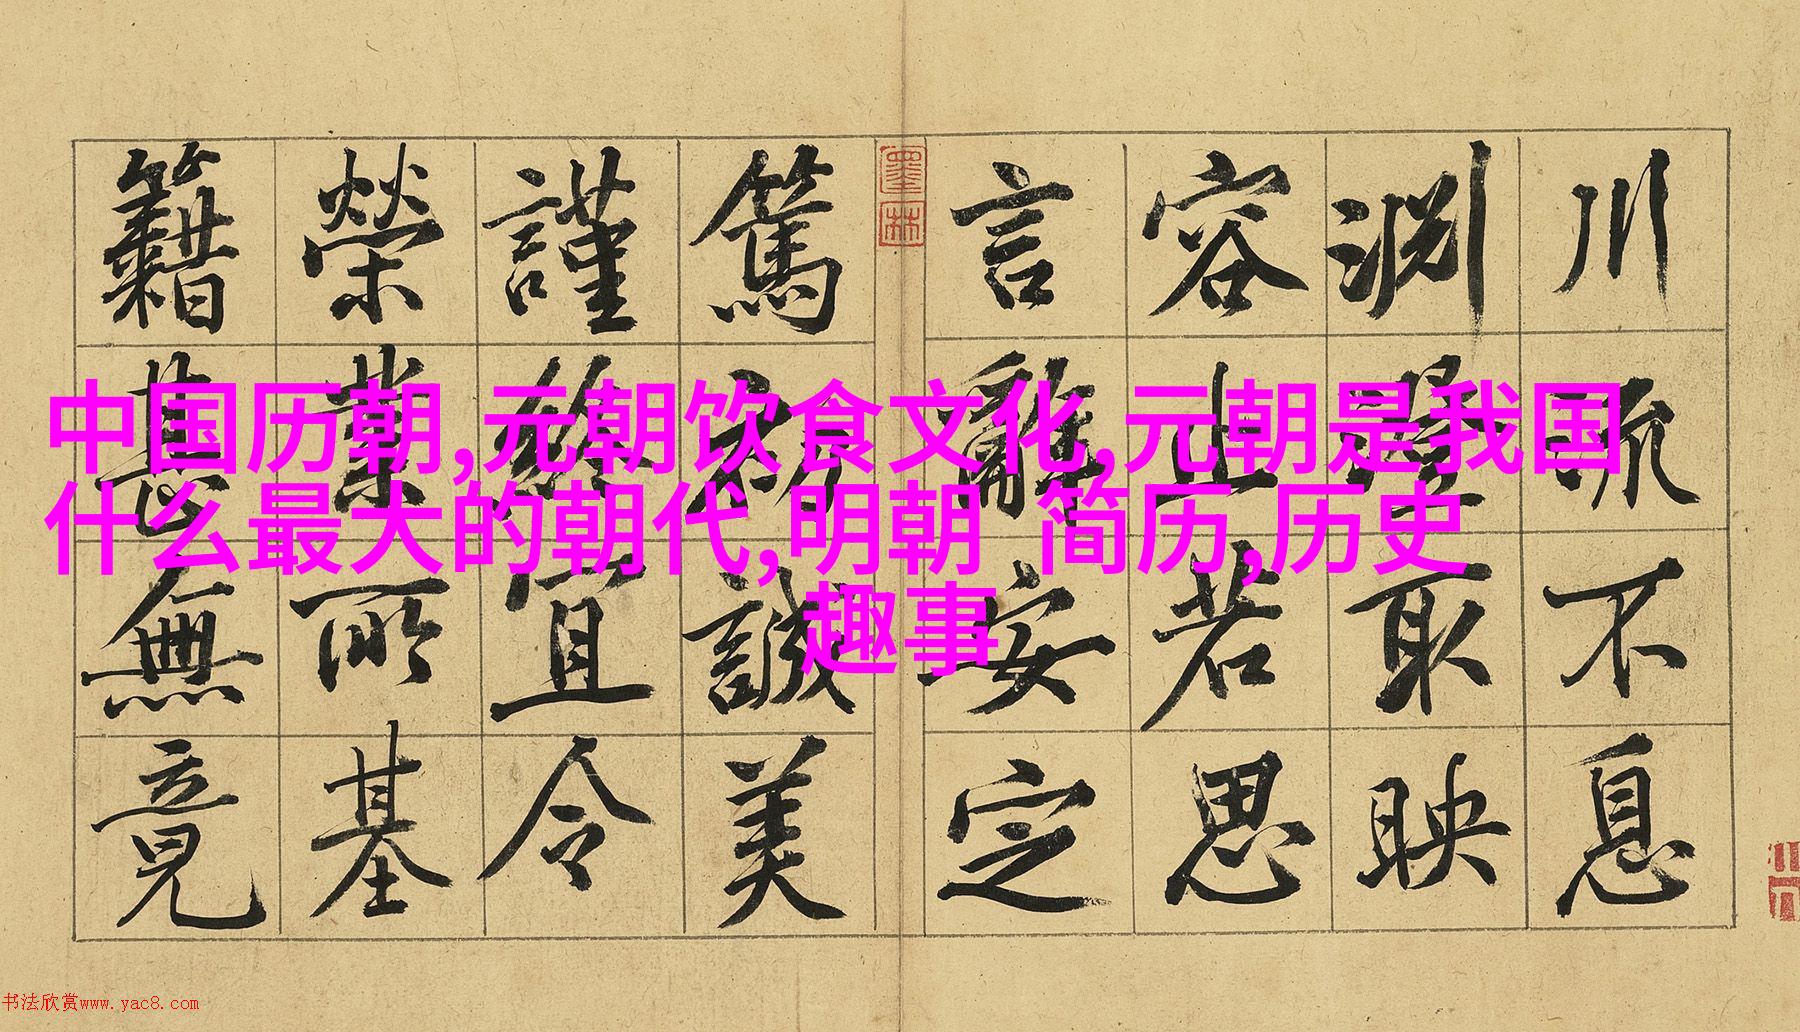 川流不息
淵澄取映
容止若思
言辭安定
墨林
篤初誠美
謹終宜令
榮業所基
籍甚無竟
中国历朝,元朝饮食文化,元朝是我国
什么最大的朝代,明朝 简历,历史
趣事
书法欣赏www.yac8.com